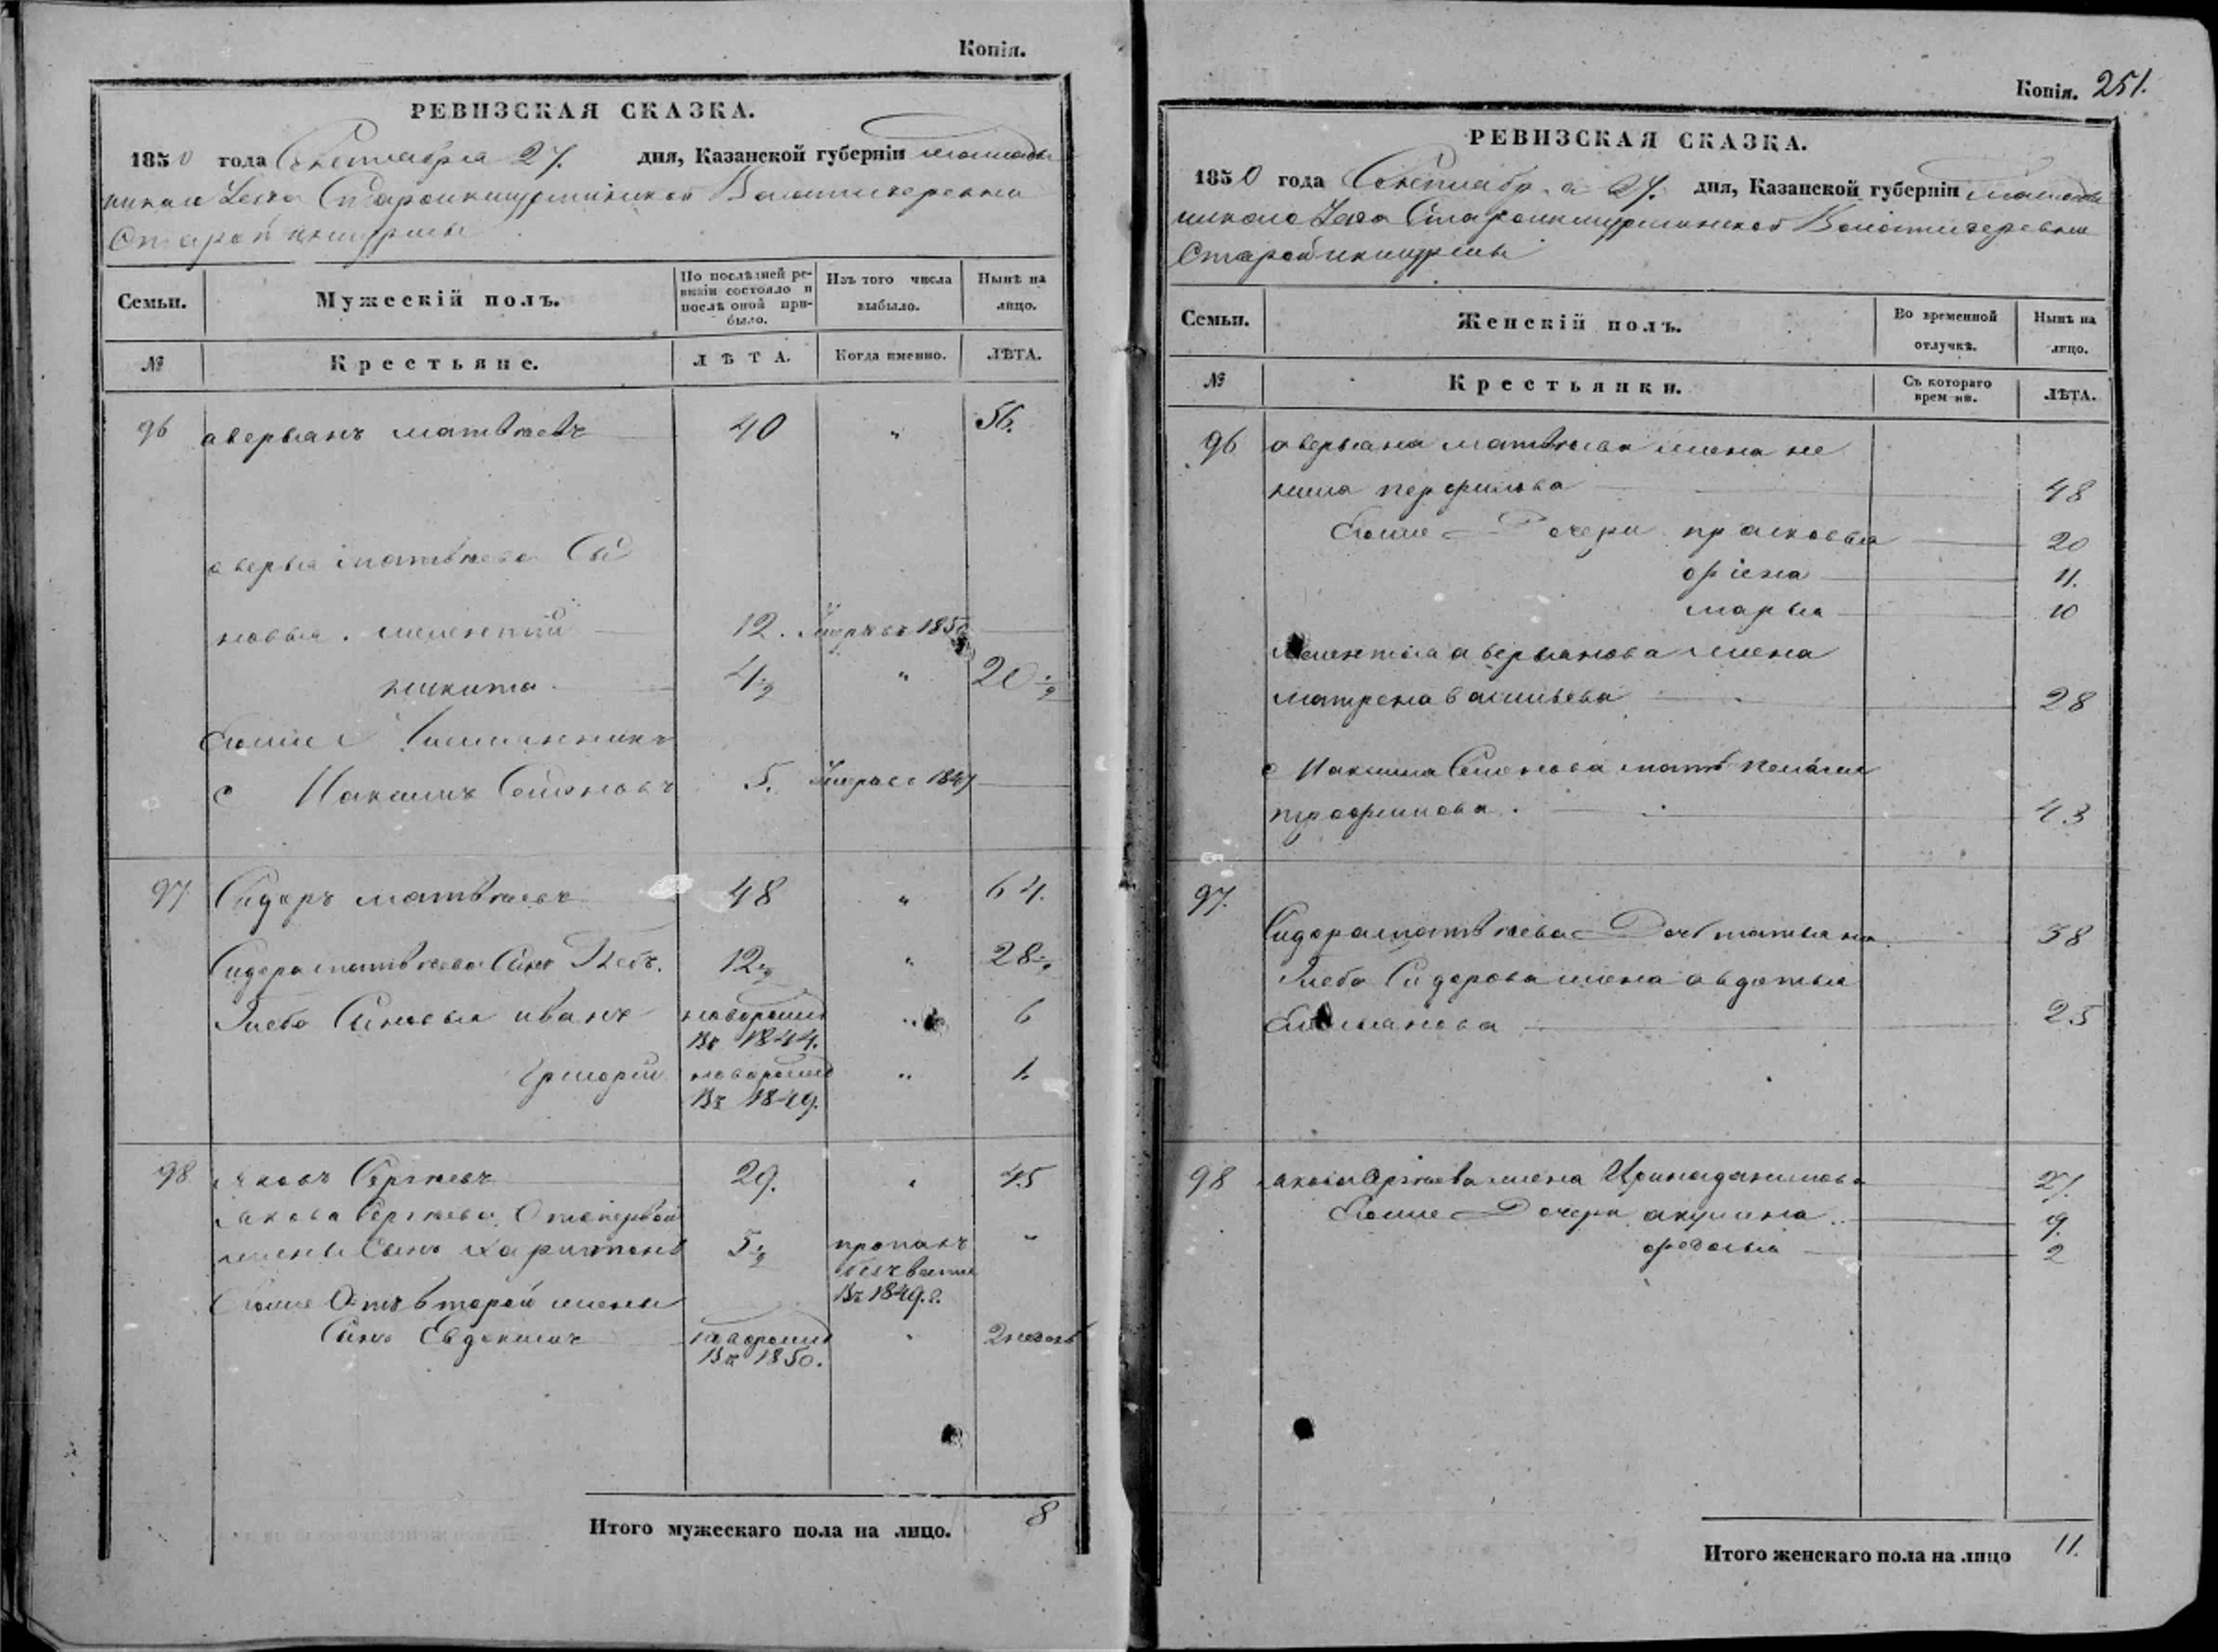 Копія.
РЕВИЗСКАЯ СКАЗКА.
1850 года Сентября 27. дня, Казанской губерніи мамадыш
скаго Уезда Староикшурминской Волости деревни
Старой икшурмы
Семьи. Мужескій полъ. По послѣдней ре-
визіи состояло и
послѣ оной при-
было. Изъ того числа
выбыло. Нынѣ на
лицо.
№ Крестьяне. ЛѢТА. Когда именно. ЛѢТА.
96 аверьянъ матвѣевъ 40 " 56.
аверья матвѣева Сы
новья. мементий 12. Умеръ въ 1850
никита 4 1/2 " 20 1/2
Егоже Племянникъ
с Максимъ Семеновъ 5. Умеръ въ 1847
97 Сидоръ матвѣевъ 48 " 64.
Сидора матвѣева Сынъ Глебъ. 12 1/2 " 28 1/2
Глеба Сыновья иванъ новорожд " 6
Въ 1844.
григорий новорожд " 1.
Въ 1849.
98 яковъ Сергѣевъ 29. " 45
якова Сергѣева Отпервой
жены Сынъ харитонъ 5 1/2 пропалъ "
безъ вести
Въ 1849.г.
Егоже Отъ второй жены
Сынъ Евдокимъ новорожд " 2 недель
Въ 1850.
Итого мужескаго пола на лицо. 8
Копія. 251.
РЕВИЗСКАЯ СКАЗКА.
1850 года Сентября 27. дня, Казанской губерніи мамады
шскаго Уезда Староикшурминской Волости деревни
Старой икшурмы
Семьи. Женскій полъ. Во временной
отлучкѣ. Нынѣ на
лицо.
№ Крестьянки. Съ котораго
времени. ЛѢТА.
96 аверьяна матвѣева жена не
нила перфилова 48
Егоже Дочери прасковья 20
орина 11.
марья 10
мементья аверьянова жена
матрена васильева 28
с Максима Семенова мать пелагия
трофимова. 43
97.
Сидора матвѣева Дочь татьяна. 38
Глеба Сидорова жена авдотья
Емельянова 25
98 якова Сергѣева жена Ирина данилова 27.
Егоже Дочери акулина. 9.
федосья 2
Итого женскаго пола на лицо 11.